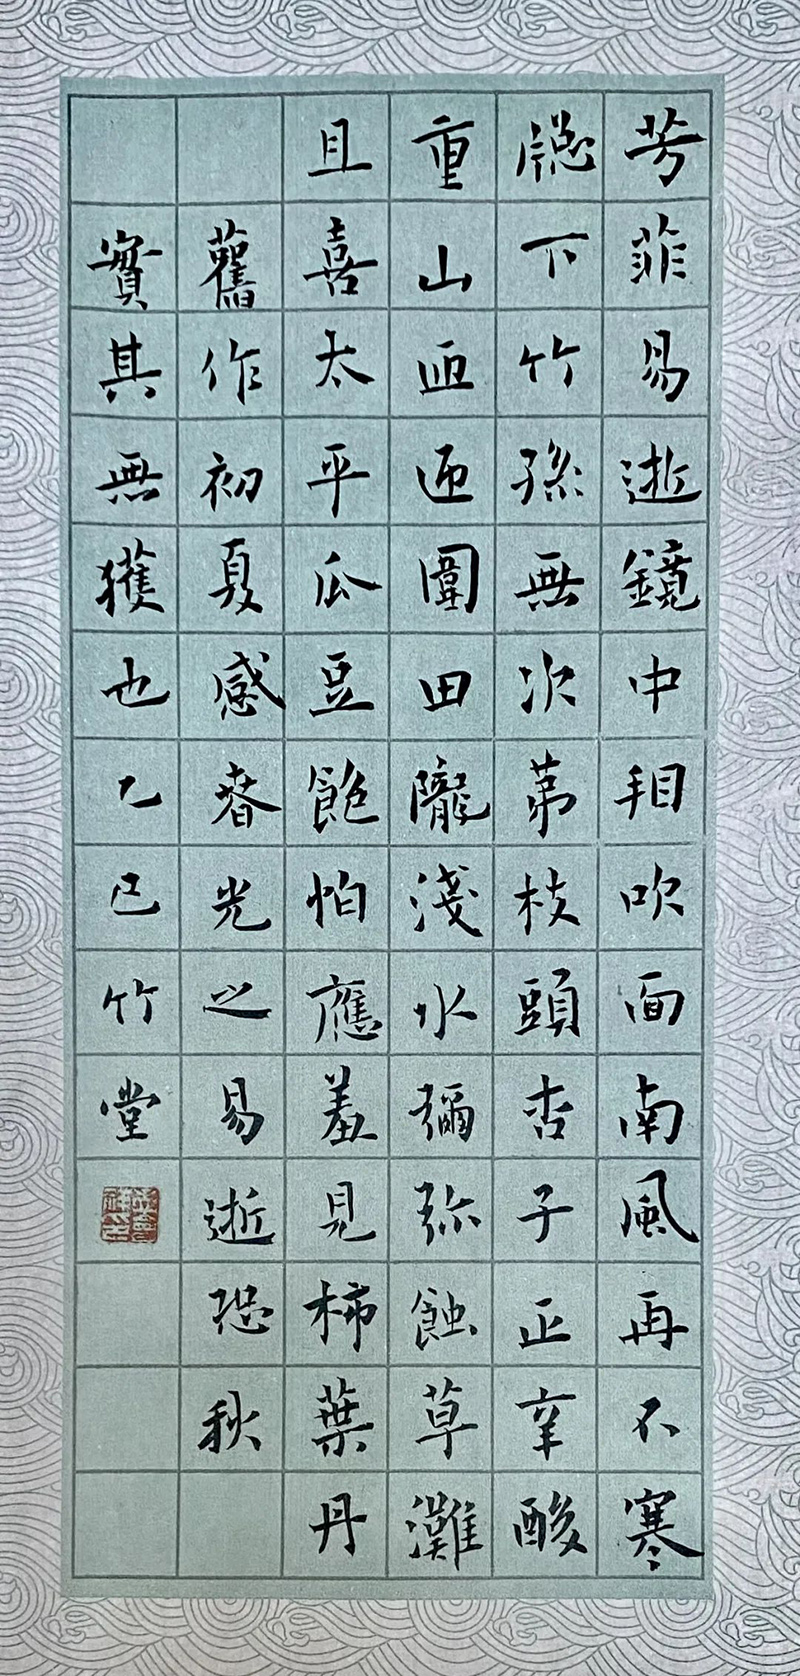 芳菲易逝鏡中看吹面南風再不寒
牕下竹孫無次第枝頭杏子正辛酸
重山匝迊圍田隴淺水彌弥蝕草灘
且喜太平瓜豆飽怕應羞見柿葉丹
舊作初夏感春光之易逝恐秋
實其無獲也乙巳竹堂